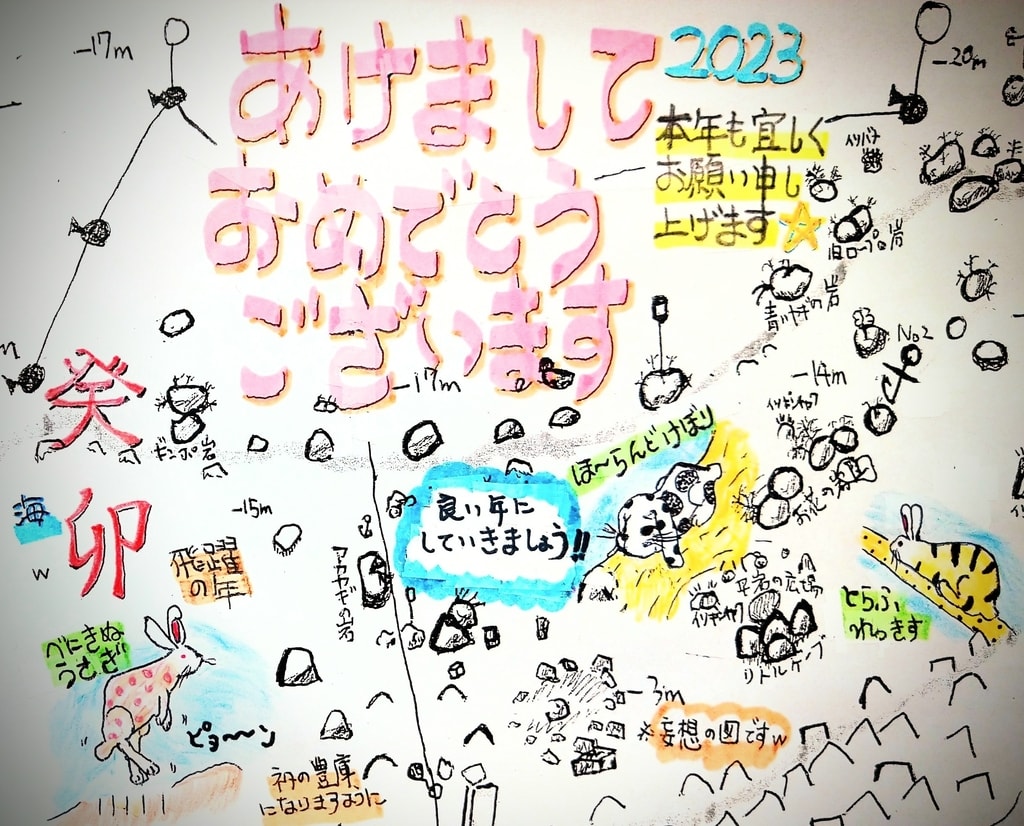 -17m
あけまして
おめでとう
ございます
2023
本年も宜しく
お願い申し
上げます
-20m
イソバナ
旧ロープの岩
青いヤギの岩
83
No2
-17m
-14m
癸
卯
海
w
ギンポ岩
-15m
飛躍
の年
アカヤギの岩
良い年に
していきましょう!!
ほ〜らんどけぼり
平岩の広場
リトルケープ
とらふ
べにきぬ
うさぎ
ピョ〜〜ン
ネタの豊庫
になりますように
-3m
※妄想の図ですw